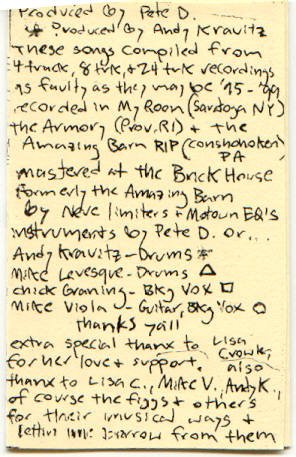 Produced by Pete D.
* Produced by Andy Kravitz
These songs compiled from
4 track, 8 trk, + 24 trk recordings
as faulty as they may be '95 - '99
recorded in My Room (Saratoga NY)
the Armory (Prov, RI) + the
Amazing Barn RIP (conshohoken)
PA
mastered at the Brick House
formerly the Amazing Barn
by Neve limiters + Motown EQ's
instruments by Pete D. or...
Andy Kravitz - Drums *
Mike Levesque - Drums △
chick Graning - Bkg Vox □
Mike Viola - Guitar, Bkg Vox ○
thanks yall
extra special thanx to Lisa
Crowke,
for her love + support. also
thanx to Lisa C., Mike V., Andy K.,
of course the figgs + others
for their musical ways +
lettin me borrow from them